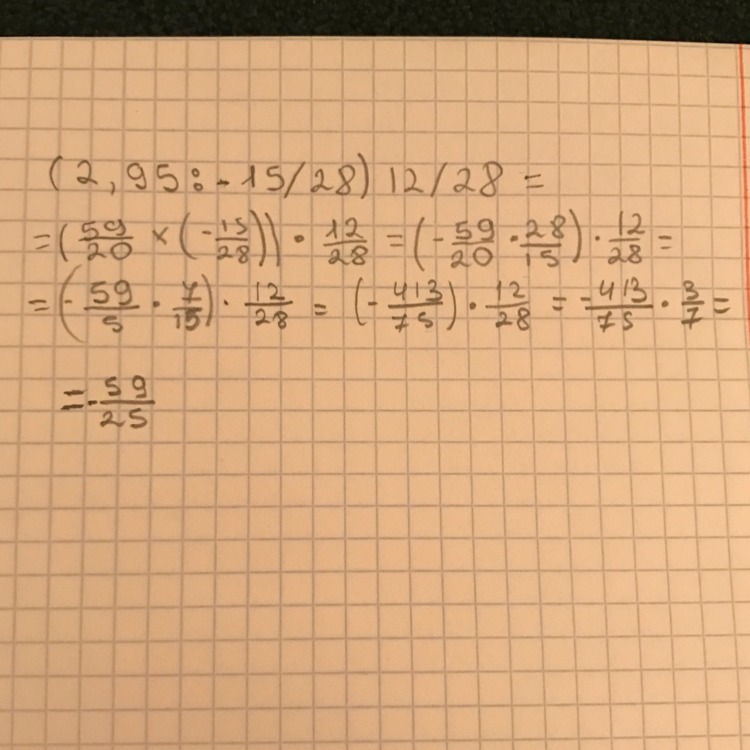 (2,95:-15/28) 12/28 =
=(59/20 × (-15/28)) · 12/28 = (-59/20 · 28/15) · 12/28 =
= (-59/5 · 7/15) · 12/28 = (-413/75) · 12/28 = -413/75 · 3/7 =
=-59/25